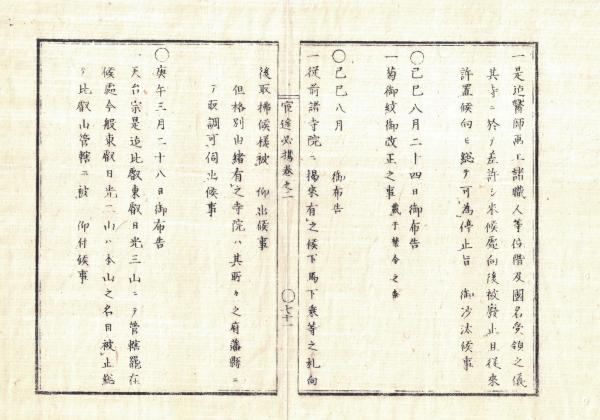 一是迠醫師画工諸職人等位階及國名受領之儀
其寺ニ於テ差許シ来候處向後被廢止且従来
許置候向ヒ総テ可為停止旨 御沙汰候事
○己巳八月二十四日御布告
一菊御紋御改正之事 載于禁令之部
○己巳八月 御布告
一従前諸寺院ニ揚来有之候下馬下乗等之札向
宦途必携巻之二 ○七十一
後取拂候様被 仰出候事
但格別由緒有之寺院ハ其所々之府藩縣ニ
テ取調可伺出候事
○庚午三月二十八日御布告
天台宗是迠比叡東叡日光三山ニテ管轄罷在
候處今般東叡日光二山ハ本山之名目被止総
テ比叡山管轄ニ被 仰付候事